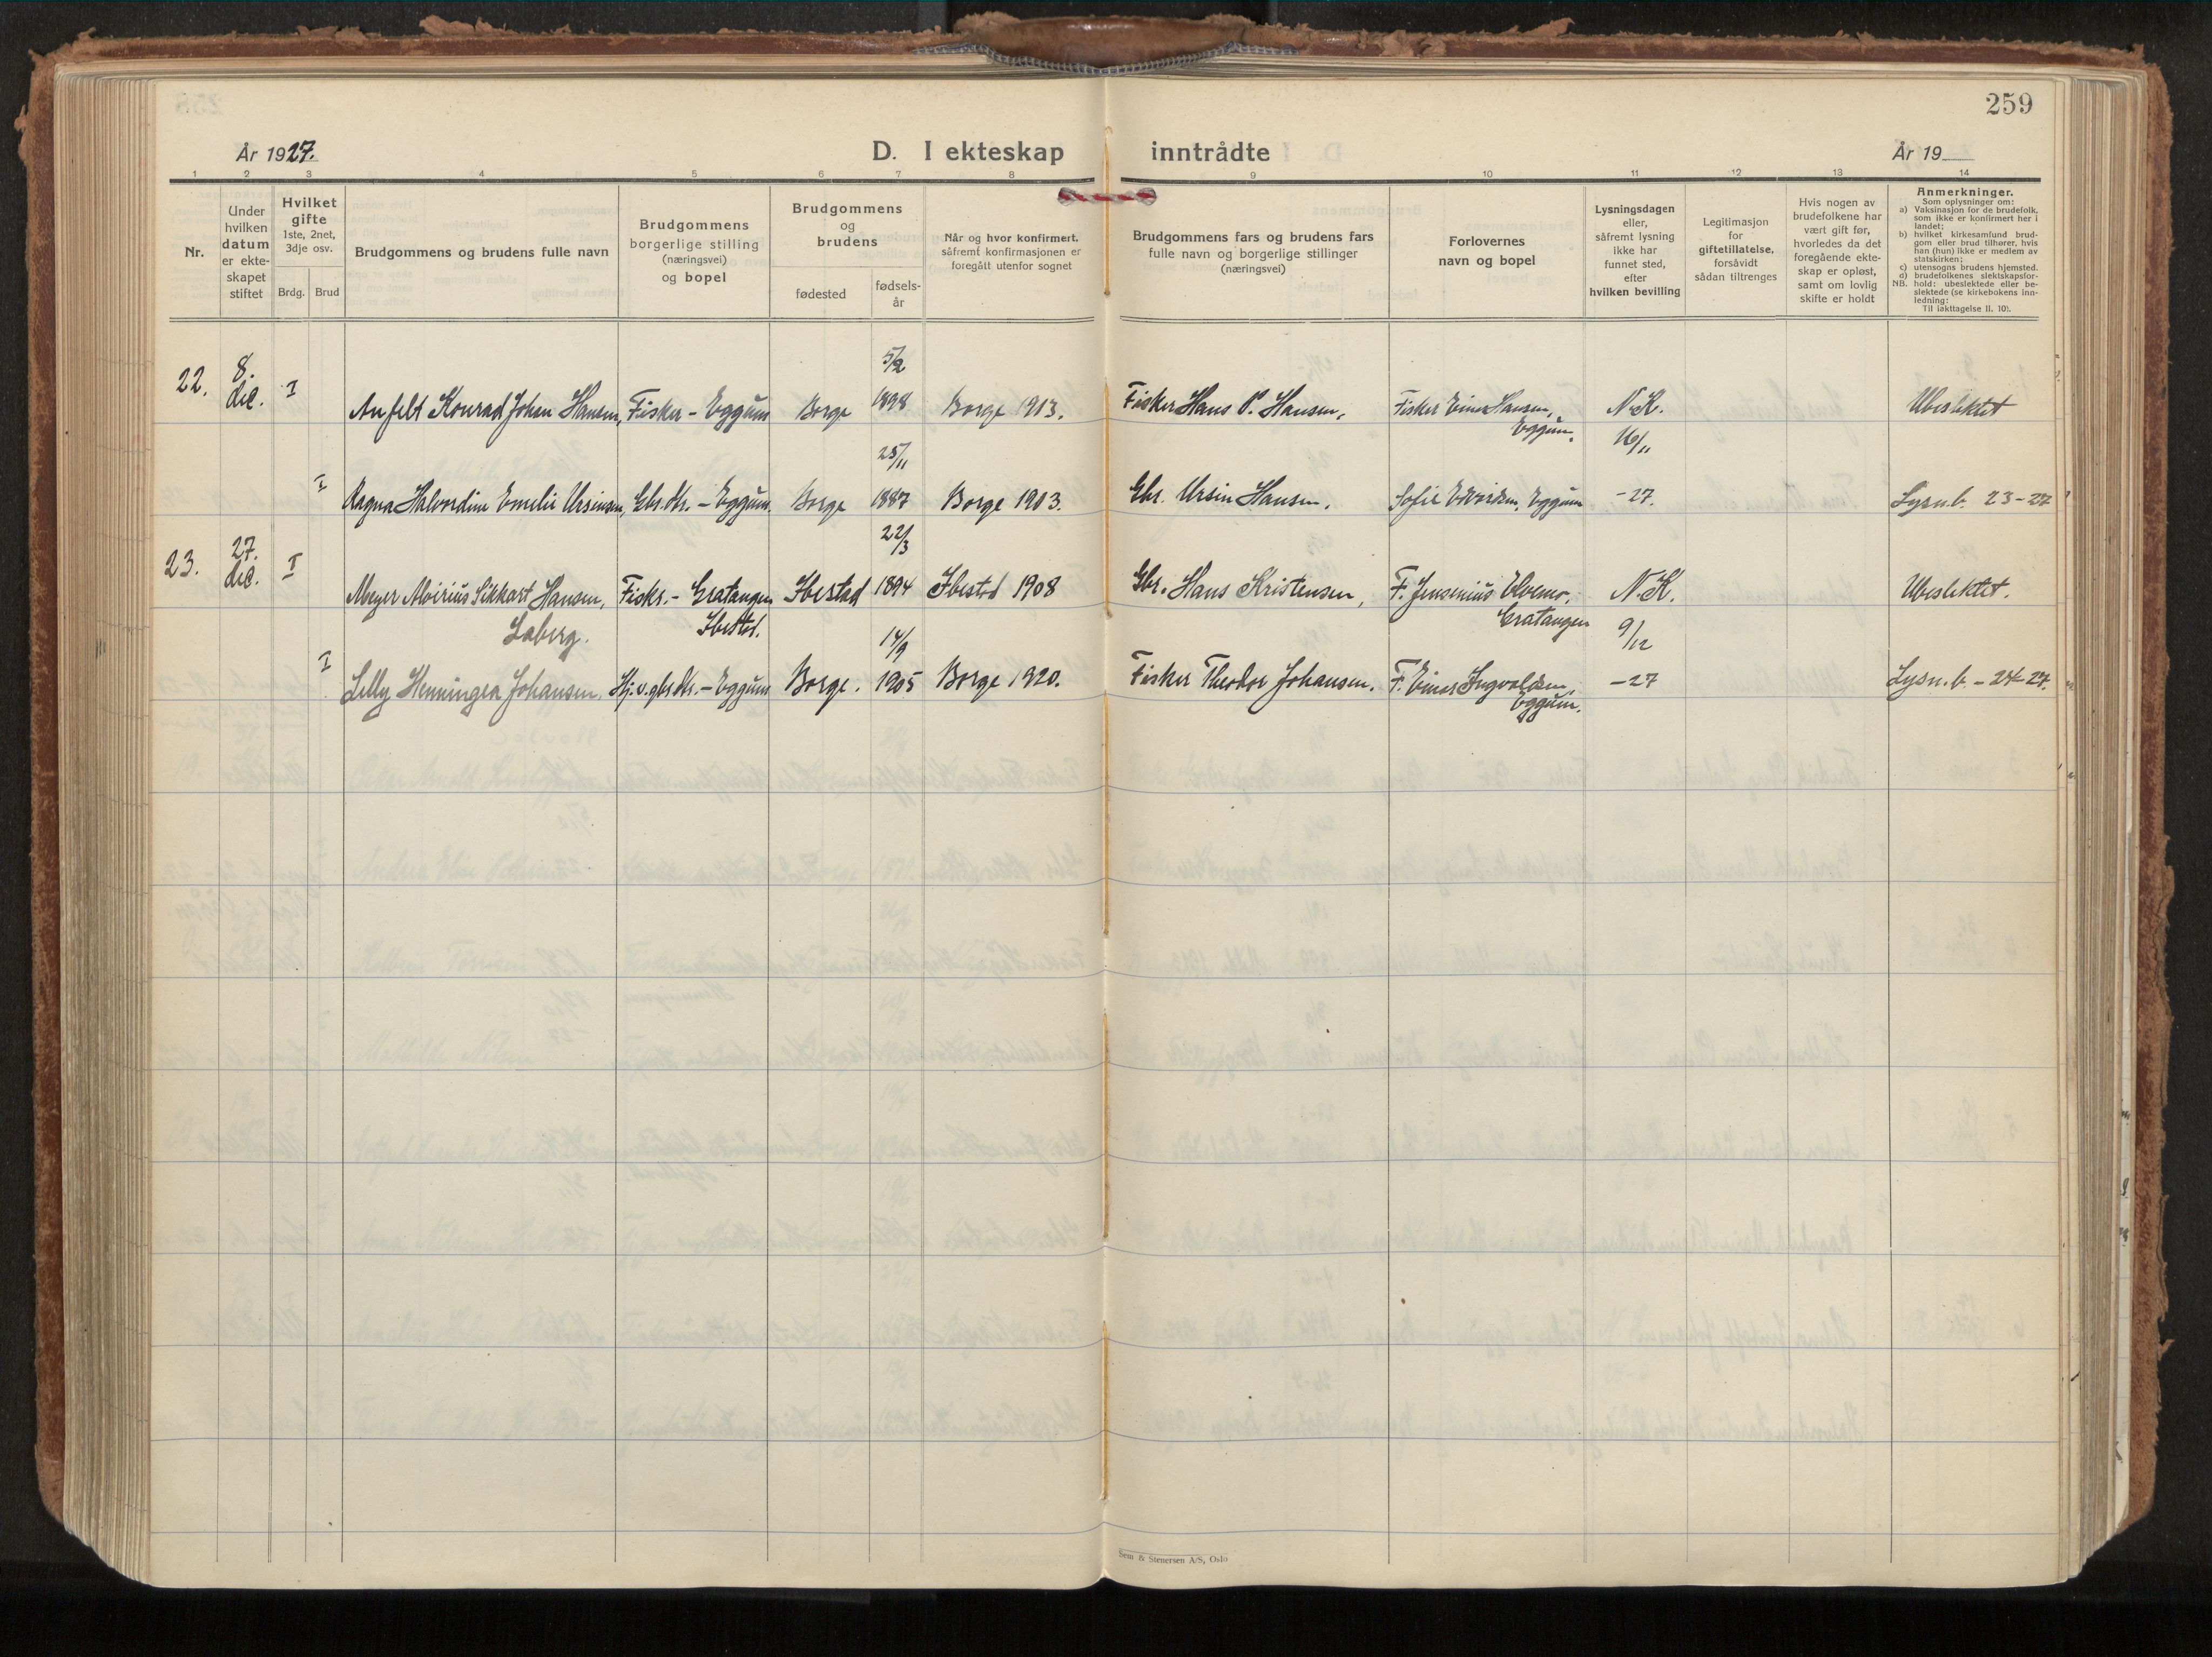 259
År 1927.
D. I ekteskap
inntrådte
År 19
1 2 3 4 5 6 7 8 9 10 11 12 13 14
Nr.
Under
hvilken
datum
er ekte-
skapet
stiftet
Hvilket
gifte
1ste, 2net,
3dje osv.
Brdg. Brud
Brudgommens og brudens fulle navn
Brudgommens
borgerlige stilling
(næringsvei)
og bopel
Brudgommens
og
brudens
fødested
fødsels-
år
Når og hvor konfirmert,
såfremt konfirmasjonen er
foregått utenfor sognet
Brudgommens fars og brudens fars
fulle navn og borgerlige stillinger
(næringsvei)
Forlovernes
navn og bopel
Lysningsdagen
eller,
såfremt lysning
ikke har
funnet sted,
efter
hvilken bevilling
Legitimasjon
for
giftetillatelse,
forsåvidt
sådan tiltrenges
Hvis nogen av
brudefolkene har
vært gift før,
hvorledes da det
foregående ekte-
skap er opløst,
samt om lovlig
skifte er holdt
Anmerkninger.
Som oplysninger om:
a) Vaksinasjon for de brudefolk,
som ikke er konfirmert her i
landet;
b) hvilket kirkesamfund brud-
gom eller brud tilhører, hvis
han (hun) ikke er medlem av
statskirken;
c) utensogns brudens hjemsted.
d) brudefolkenes slektskapsfor-
NB. hold: ubeslektede eller be-
slektede (se kirkebokens inn-
ledning:
Til iakttagelse II. 10).
5/2
22. 8. dec. I Anfelt Konrad Johan Hansen, Fisker - Eggum Borge 1898 Borge 1913. Fisker Hans P. Hansen, Fisker Einer Hansen, N.K. Ubeslektet
Eggum. 16/11
25/11
I Ragna Halvordine Emelie Ursinsen, Gbr.dtr. - Eggum. Borge 1887 Borge 1903. Gbr. Ursin Hansen. Sofie Edvardsen, Eggum -27. Lysn.b. 23-27
22/3
23. 27. dec. I Meyer Hansen, Fiskr. - Gratangen Ibestad 1894 Ibestad 1908 Gbr. Hans Kristensen, F. Jensenius Elvemo, N.K. Ubeslektet.
Laberg. Ibestad. Gratangen 9/12
14/9
I Lelly Henningea Johansen. Hj.v.gbr.dtr. - Eggum Borge. 1905 Borge 1920. Fisker Theodor Johansen. F. Einer Ingvaldsen, -27 Lysn.b. - 24-27.
Eggum.
Sem & Stenersen A/S, Oslo